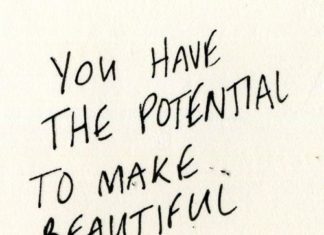 YOU HAVE
THE POTENTIAL
TO MAKE
BEAUTIFUL